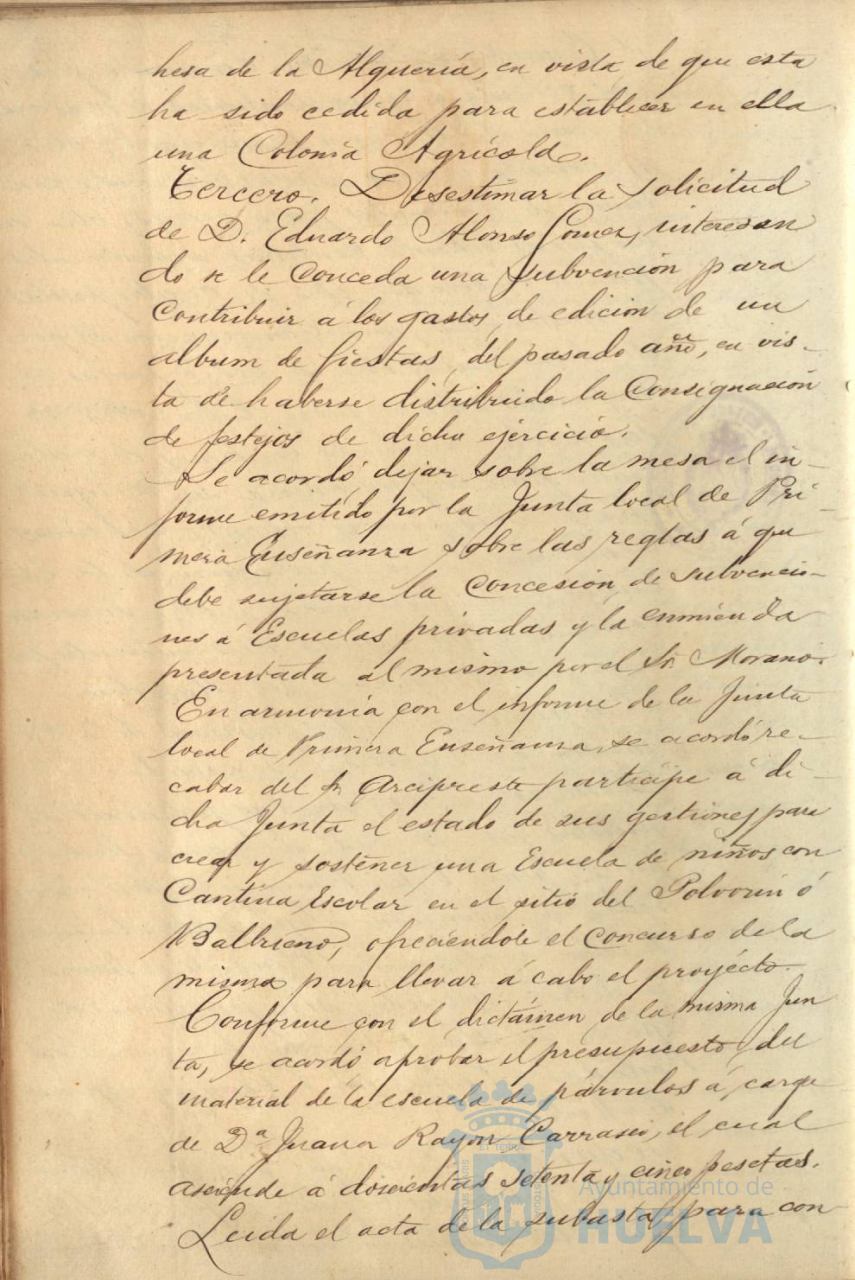 hesa de la Alquería, en vista de que esta
ha sido cedida para establecer en ella
una Colonia Agrícola.
Tercero. Desestimar la solicitud
de D. Eduardo Alonso Gomez, interesan
do se le conceda una subvención para
contribuir á los gastos de edicion de un
album de fiestas del pasado año, en vis-
ta de haberse distribuido la Consignación
de festejos de dicho ejercicio.
Se acordó dejar sobre la mesa el in-
forme emitido por la Junta local de Pri-
mera Enseñanza sobre las reglas á que
debe sujetarse la concesión de subvencio-
nes á Escuelas privadas y la enmienda
presentada al mismo por el Sr. Morano.
En armonía con el informe de la Junta
local de Primera Enseñanza, se acordó re-
cabar del Sr Arcipreste participe á di-
cha Junta el estado de sus gestiones para
crear y sostener una Escuela de niños con
Cantina Escolar en el sitio del Polvorin ó
Balbueno, ofreciéndole el concurso de la
misma para llevar á cabo el proyécto.
Conforme con el dictámen de la misma Jun
ta, se acordó aprobar el presupuesto del
material de la escuela de párvulos á cargo
de Dª Juana Rayon Carrasco, el cual
asciende á doscientas setenta y cinco pesetas.
Leida el acta de la subasta para con
Ayuntamiento de
HUELVA